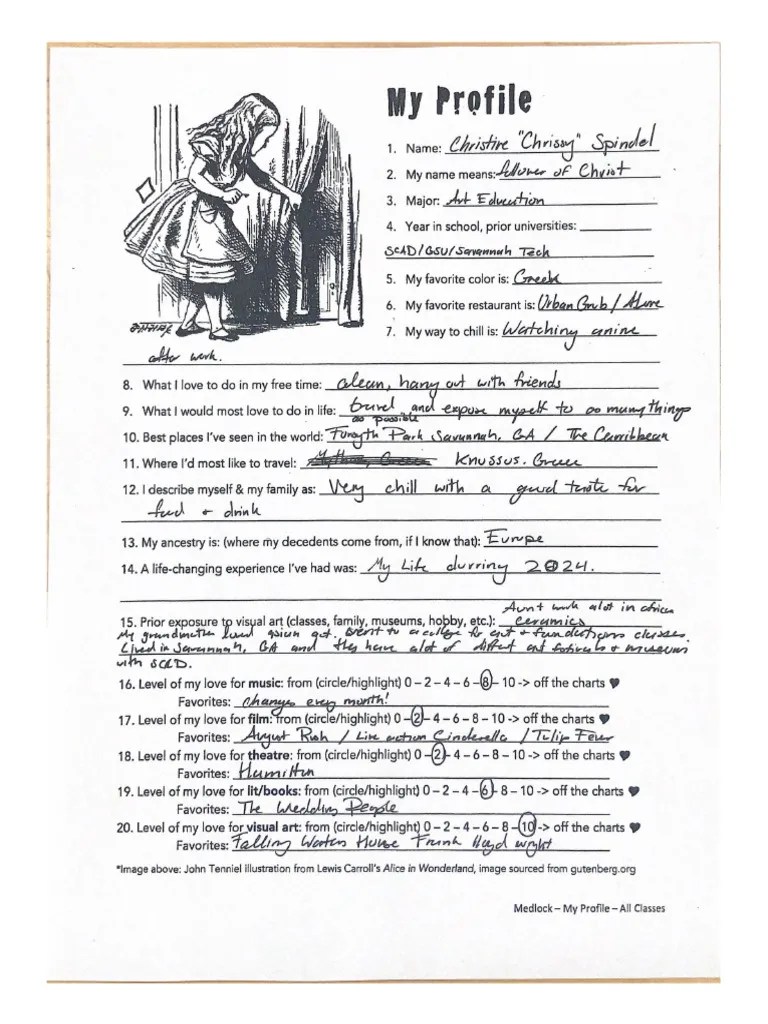 My Profile
1. Name: Christine "Chrissy" Spindel
2. My name means: follower of Christ
3. Major: Art Education
4. Year in school, prior universities:
SCAD/GSU/Savannah Tech
5. My favorite color is: Green
6. My favorite restaurant is: Urban Grub /
7. My way to chill is: Watching anime
after work.
8. What I love to do in my free time: clean, hang out with friends
9. What I would most love to do in life: travel and expose myself to as many things
as possible
10. Best places I've seen in the world: Forsyth Park Savannah, GA / The Carribbean
11. Where I'd most like to travel: Knussus. Greece
12. I describe myself & my family as: Very chill with a good taste for
food + drink
13. My ancestry is: (where my decedents come from, if I know that): Europe
14. A life-changing experience I've had was: My Life durring 2024.
Aunt work alot in african
15. Prior exposure to visual art (classes, family, museums, hobby, etc.): ceramics
My grandmother loved asian art. Went to a college for art + fundations classes.
Lived in Savannah, GA and they have alot of diffent art festivals + museums
with SCAD.
16. Level of my love for music: from (circle/highlight) 0 – 2 – 4 – 6 – 8 – 10 -> off the charts ♥
Favorites: changes every month!
17. Level of my love for film: from (circle/highlight) 0 – 2 – 4 – 6 – 8 – 10 -> off the charts ♥
Favorites: August Rush / Live action Cinderella / Tulip Fever
18. Level of my love for theatre: from (circle/highlight) 0 – 2 – 4 – 6 – 8 – 10 -> off the charts ♥
Favorites: Hamilton
19. Level of my love for lit/books: from (circle/highlight) 0 – 2 – 4 – 6 – 8 – 10 -> off the charts ♥
Favorites: The Wedding People
20. Level of my love for visual art: from (circle/highlight) 0 – 2 – 4 – 6 – 8 – 10 -> off the charts ♥
Favorites: Falling Waters House Frank lloyd wright
*Image above: John Tenniel illustration from Lewis Carroll's Alice in Wonderland, image sourced from gutenberg.org
Medlock – My Profile – All Classes